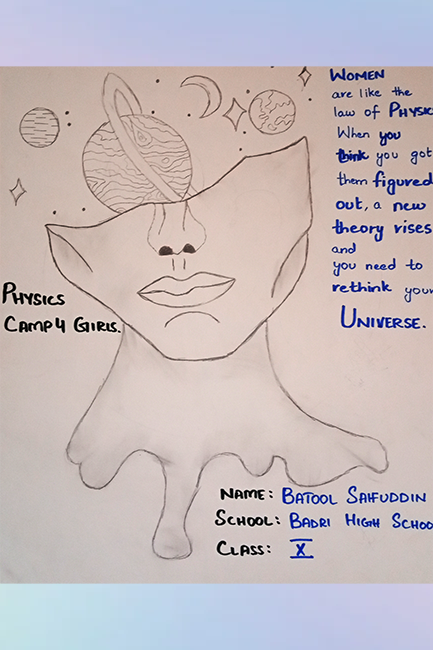 WOMEN
are like the
law of PHYSIC
When you
think you got
them figured
out, a new
theory rises
and
you need to
rethink your
UNIVERSE.
PHYSICS
CAMP 4 GIRLS.
NAME: BATOOL SAIFUDDIN
SCHOOL: BADRI HIGH SCHOO
CLASS: X